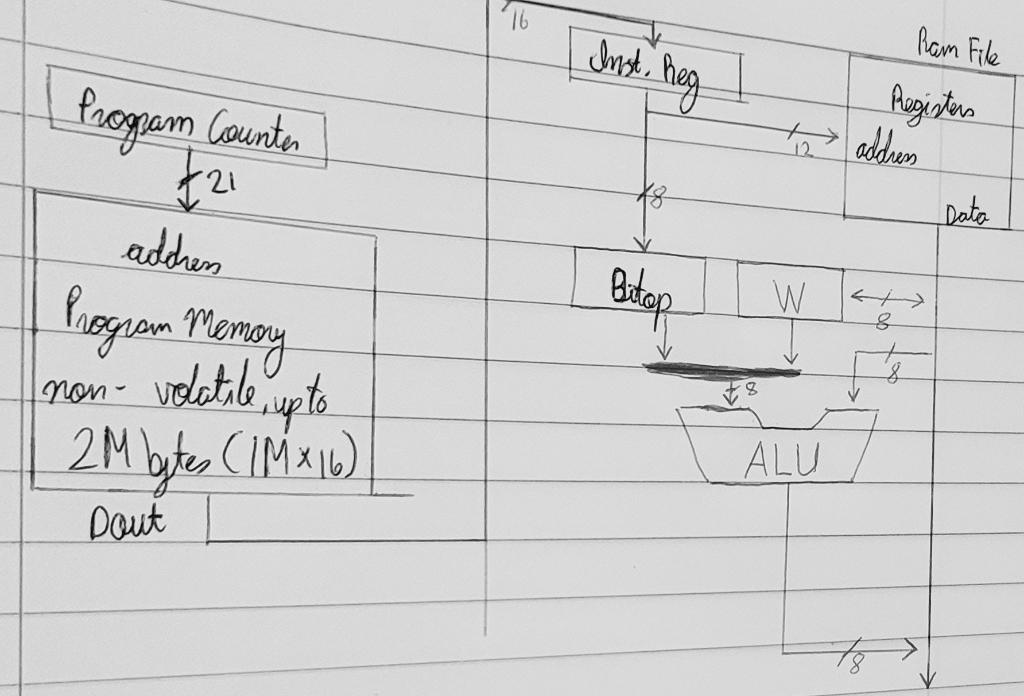 Program Counter
21
address
Program Memory
non-volatile, upto
2M bytes (1M×16)
Dout
16
Inst. Reg
Ram File
Registers
address
Data
12
8
Bitop
W
8
8
8
ALU
8